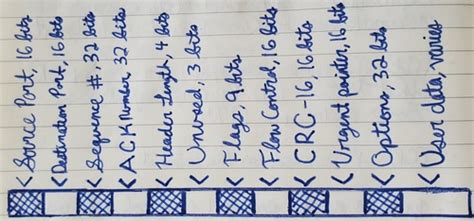 < Source Port, 16 bits
< Destination Port, 16 bits
< Sequence #, 32 bits
< ACK Number, 32 bits
< Header Length, 4 bits
< Unused, 3 bits
< Flags, 9 bits
< Flow Control, 16 bits
< CRC-16, 16 bits
< Urgent pointer, 16 bits
< Options, 32 bits
< User data, varies